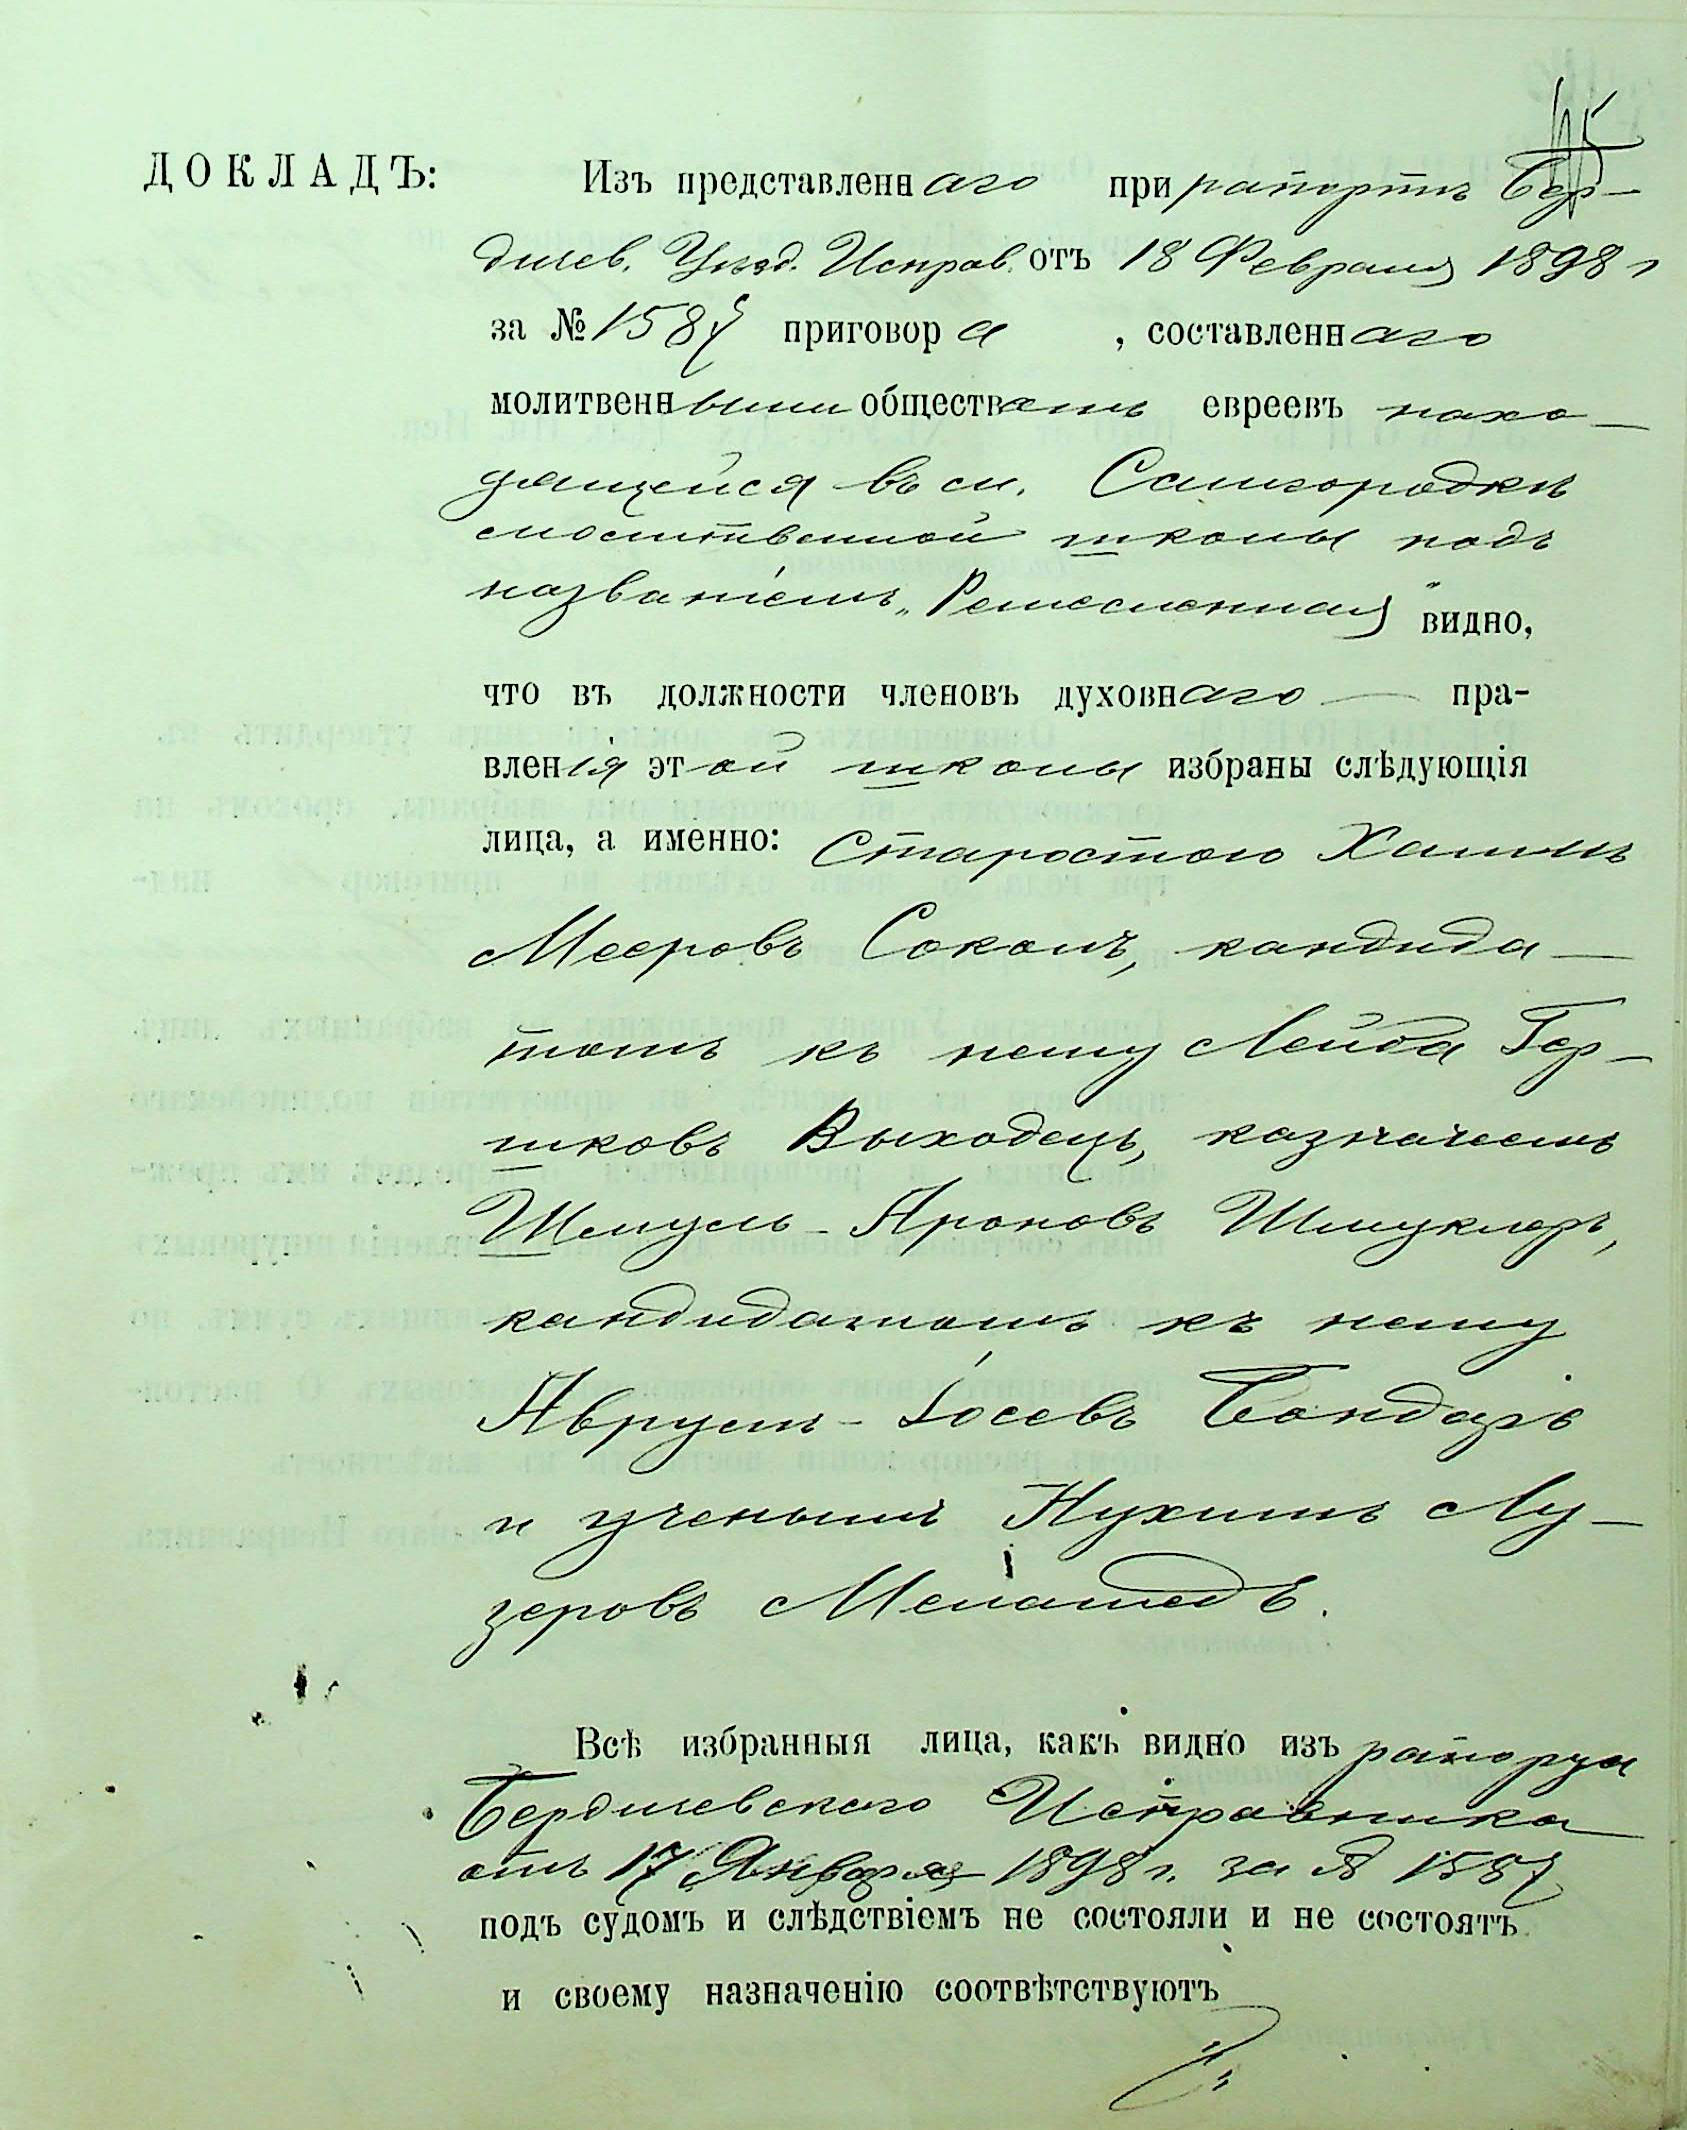 115
ДОКЛАДЪ: Изъ представленнаго при рапортѣ Бер-
дичев. Уѣзд. Исправ. отъ 18 Февраля 1898 г
за № 1587 приговора , составленнаго
молитвеннымъ обществомъ евреевъ нахо-
дящейся въ м. Самгородкѣ
молитвенной школы подъ
названіемъ „Ремесленная" видно,
что въ должности членовъ духовнаго — пра-
вленія этой школы избраны слѣдующія
лица, а именно: Старостою Хаимъ
Мееровъ Соколъ, кандида-
томъ къ нему Лейба Гер-
шковъ Выходецъ, казначеемъ
Шмуль-Ароновъ Шмуклеръ,
кандидатомъ къ нему
Аврумъ-Іосевъ Бондарь
и ученымъ Нухимъ Лу-
зеровъ
Всѣ избранныя лица, какъ видно изъ рапорта
Бердичевскаго Исправника
отъ 17 Января 1898 г. за № 1587
подъ судомъ и слѣдствіемъ не состояли и не состоятъ
и своему назначенію соотвѣтствуютъ